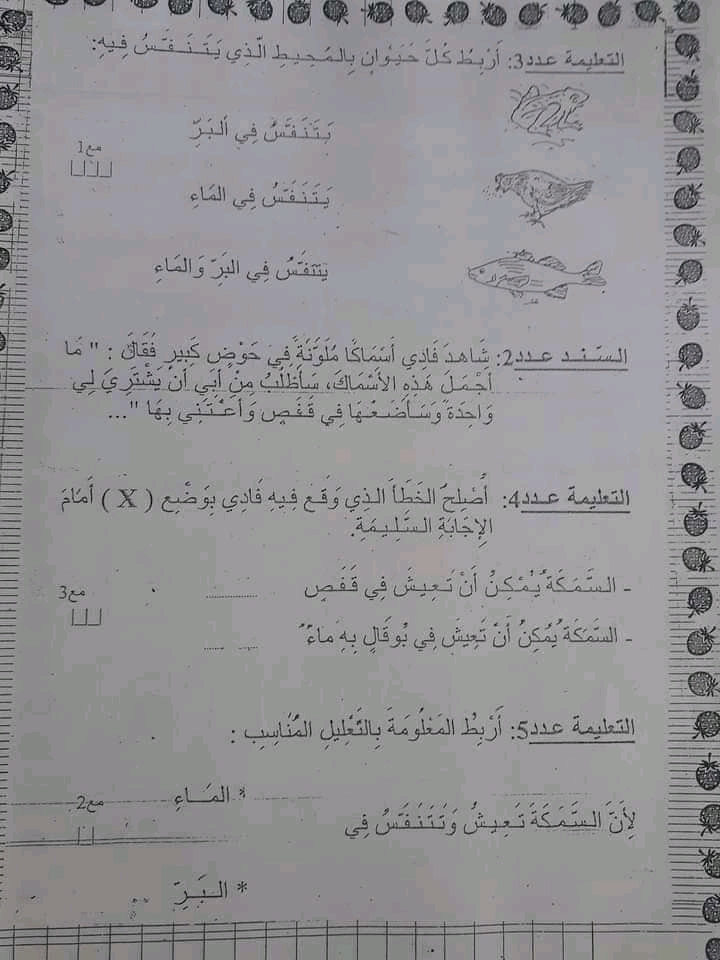 التعليمة عدد3: أَرْبِطُ كُلَّ حَيَوَانٍ بِالمُحِيطِ الَّذِي يَتَنَفَّسُ فِيهِ:
يَتَنَفَّسُ فِي البَرِّ
مع1
يَتَنَفَّسُ فِي المَاءِ
يَتَنَفَّسُ فِي البَرِّ وَالمَاءِ
السند عدد2: شَاهَدَ فَادِي أَسْمَاكًا مُلَوَّنَةً فِي حَوْضٍ كَبِيرٍ فَقَالَ : " مَا
أَجْمَلَ هَذِهِ الأَسْمَاكَ، سَأَطْلُبُ مِنْ أَبِي أَنْ يَشْتَرِيَ لِي
وَاحِدَةً وَسَأَضَعُهَا فِي قَفَصٍ وَأَعْتَنِي بِهَا "...
التعليمة عدد4: أُصْلِحُ الخَطَأَ الذِي وَقَعَ فِيهِ فَادِي بِوَضْعِ ( X ) أَمَامَ
الإِجَابَةِ السَّلِيمَةِ.
- السَّمَكَةُ يُمْكِنُ أَنْ تَعِيشَ فِي قَفَصٍ ..............
مع3
- السَّمَكَةُ يُمْكِنُ أَنْ تَعِيشَ فِي بُوقَالٍ بِهِ مَاءٌ ..............
التعليمة عدد5: أَرْبِطُ المَعْلُومَةَ بِالتَّعْلِيلِ المُنَاسِبِ :
* المَاءِ
مع2
لِأَنَّ السَّمَكَةَ تَعِيشُ وَتَتَنَفَّسُ فِي
* البَرِّ